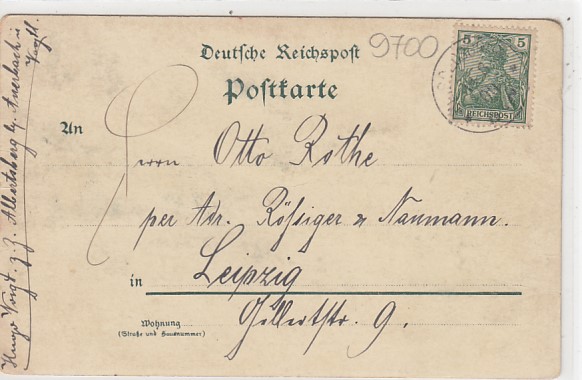 Deutsche Reichspost
9700
5 5
REICHSPOST
Postkarte
An
Herrn Otto Rothe
per Adr. Rössiger & Naumann.
in Leipzig
Wohnung
(Straße und Hausnummer)
Gellertstr. 9.
Hugo Voigt. z. Z. Allertsberg b. Auerbach i
Vogtl.